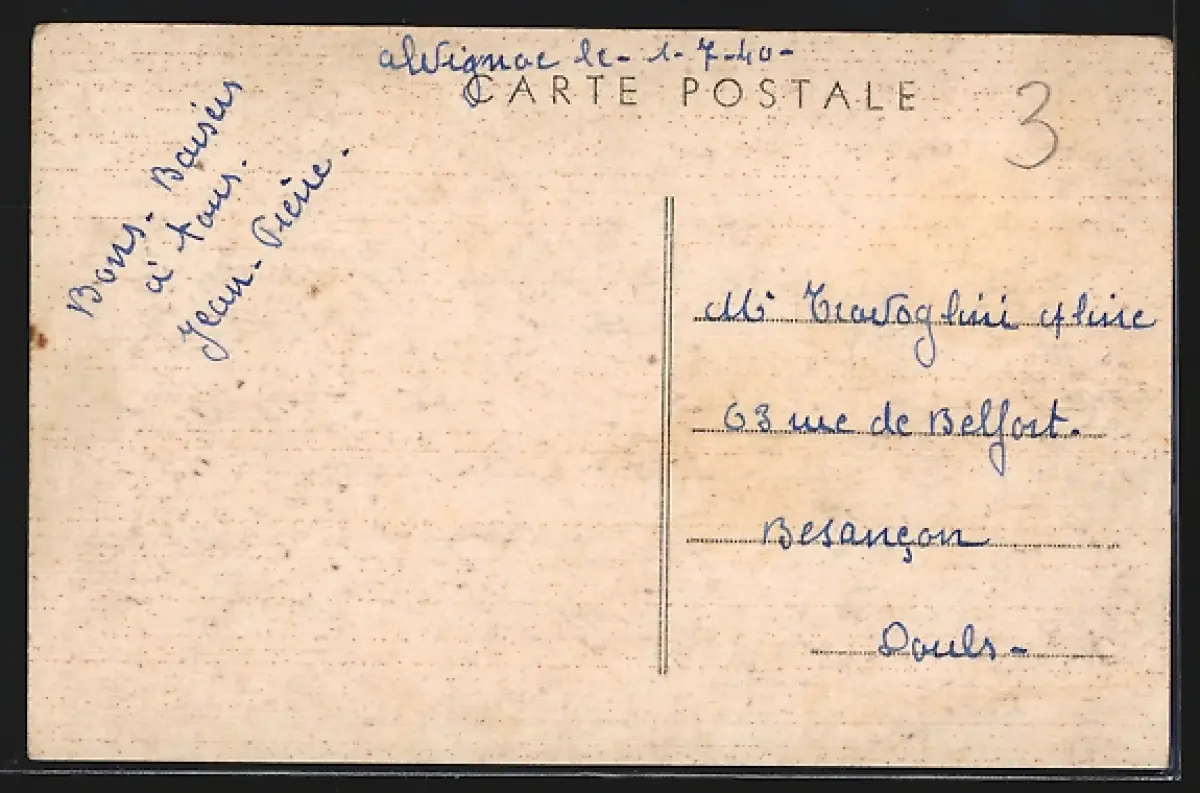 Alvignac le - 1-7-40-
CARTE POSTALE
3
Bons - Baisers
à tous.
Jean-Pierre.
Mr Travaglini Aline
63 rue de Belfort.
Besançon
Doubs-